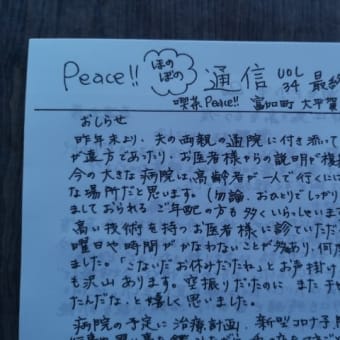 Peace!! ほのぼの 通信 VOL 34 最終
喫茶Peace!! 富加町 大平賀
おしらせ
昨年末より、夫の両親の通院に付き添って
が遠方であったり、お医者様からの説明が複雑
今の大きな病院は、高齢者が一人で行くには
な場所だと思います。(勿論、おひとりでしっかり
ましておられるご年配の方も多くいらっしゃいます
高い技術を持つお医者様に診ていただ
曜日や時間がかなわないことが多あり、何度
ました。「こないだお休みだったね」とお声掛け
も沢山あります。空振りだったのに また予
たんだな、と嬉しく思いました。
病院の予定に治療計画、新型コロナ